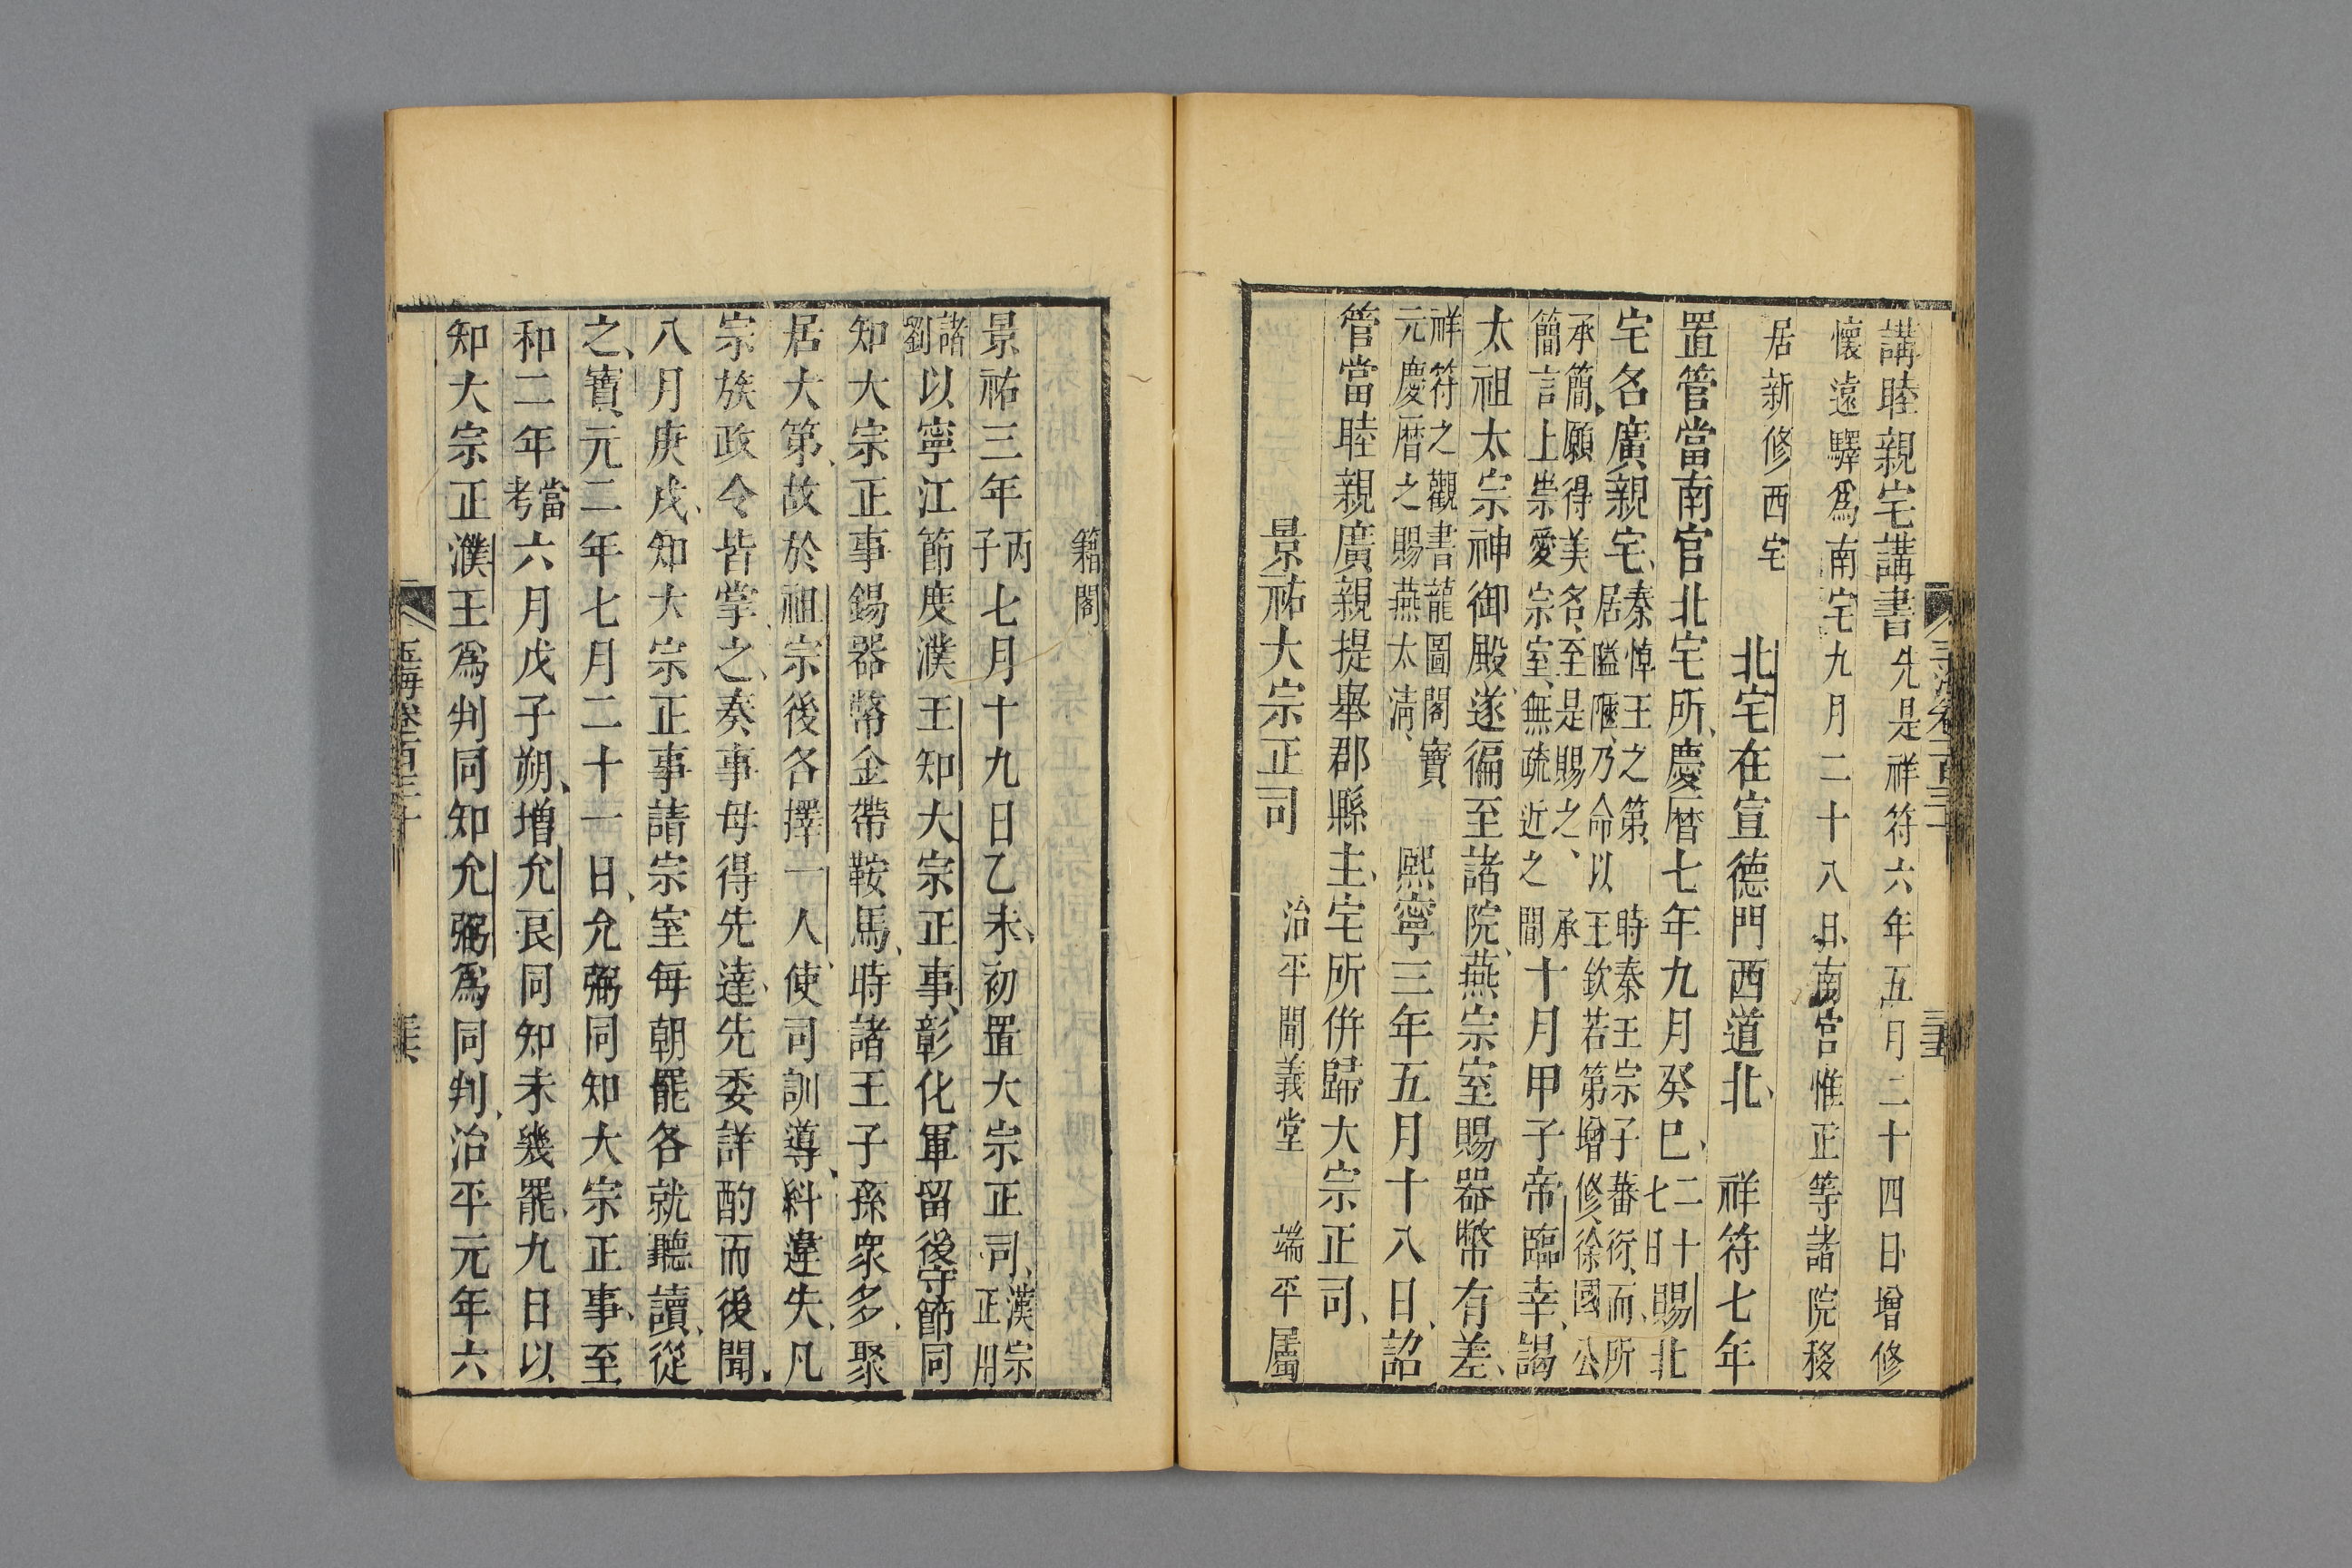 講睦親宅講書先是祥符六年五月二十四日增修
懷遠驛爲南宅九月二十八日南宮惟正等諸院移
居新修西宅
北宅在宣德門西道北、 祥符七年
置管當南官北宅所、慶曆七年九月癸巳、二十七日賜北
宅名廣親宅、秦悼王之第時秦王宗子蕃衍、而所
居隘陋、乃命以王欽若第增修、徐國公
承簡、願得美名、至是賜之、承
簡言上崇愛宗室、無疏近之間十月甲子帝臨幸、謁
太祖太宗神御殿、遂徧至諸院、燕宗室賜器幣有差、
祥符之觀書龍圖閣寶
元慶曆之賜燕太淸、 熙寧三年五月十八日、詔
管當睦親廣親提舉郡縣主、宅所併歸大宗正司、
景祐大宗正司 治平聞義堂 端平屬
籍閣
景祐三年丙子七月十九日乙未、初置大宗正司、漢宗正用
諸劉以寧江節度濮王知大宗正事、彰化軍留後守節同
知大宗正事錫器幣金帶鞍馬、時諸王子孫衆多、聚
居大第、故於祖宗後各擇一人、使司訓導、糾違失、凡
宗族政令皆掌之、奏事母得先達、先委詳酌而後聞、
八月庚戌、知大宗正事請宗室每朝罷各就聽讀、從
之、寶元二年七月二十一日、允弼同知大宗正事、至
和二年當考六月戊子朔、增允良同知未幾罷、九日以
知大宗正濮王爲判同知允弼爲同判、治平元年六